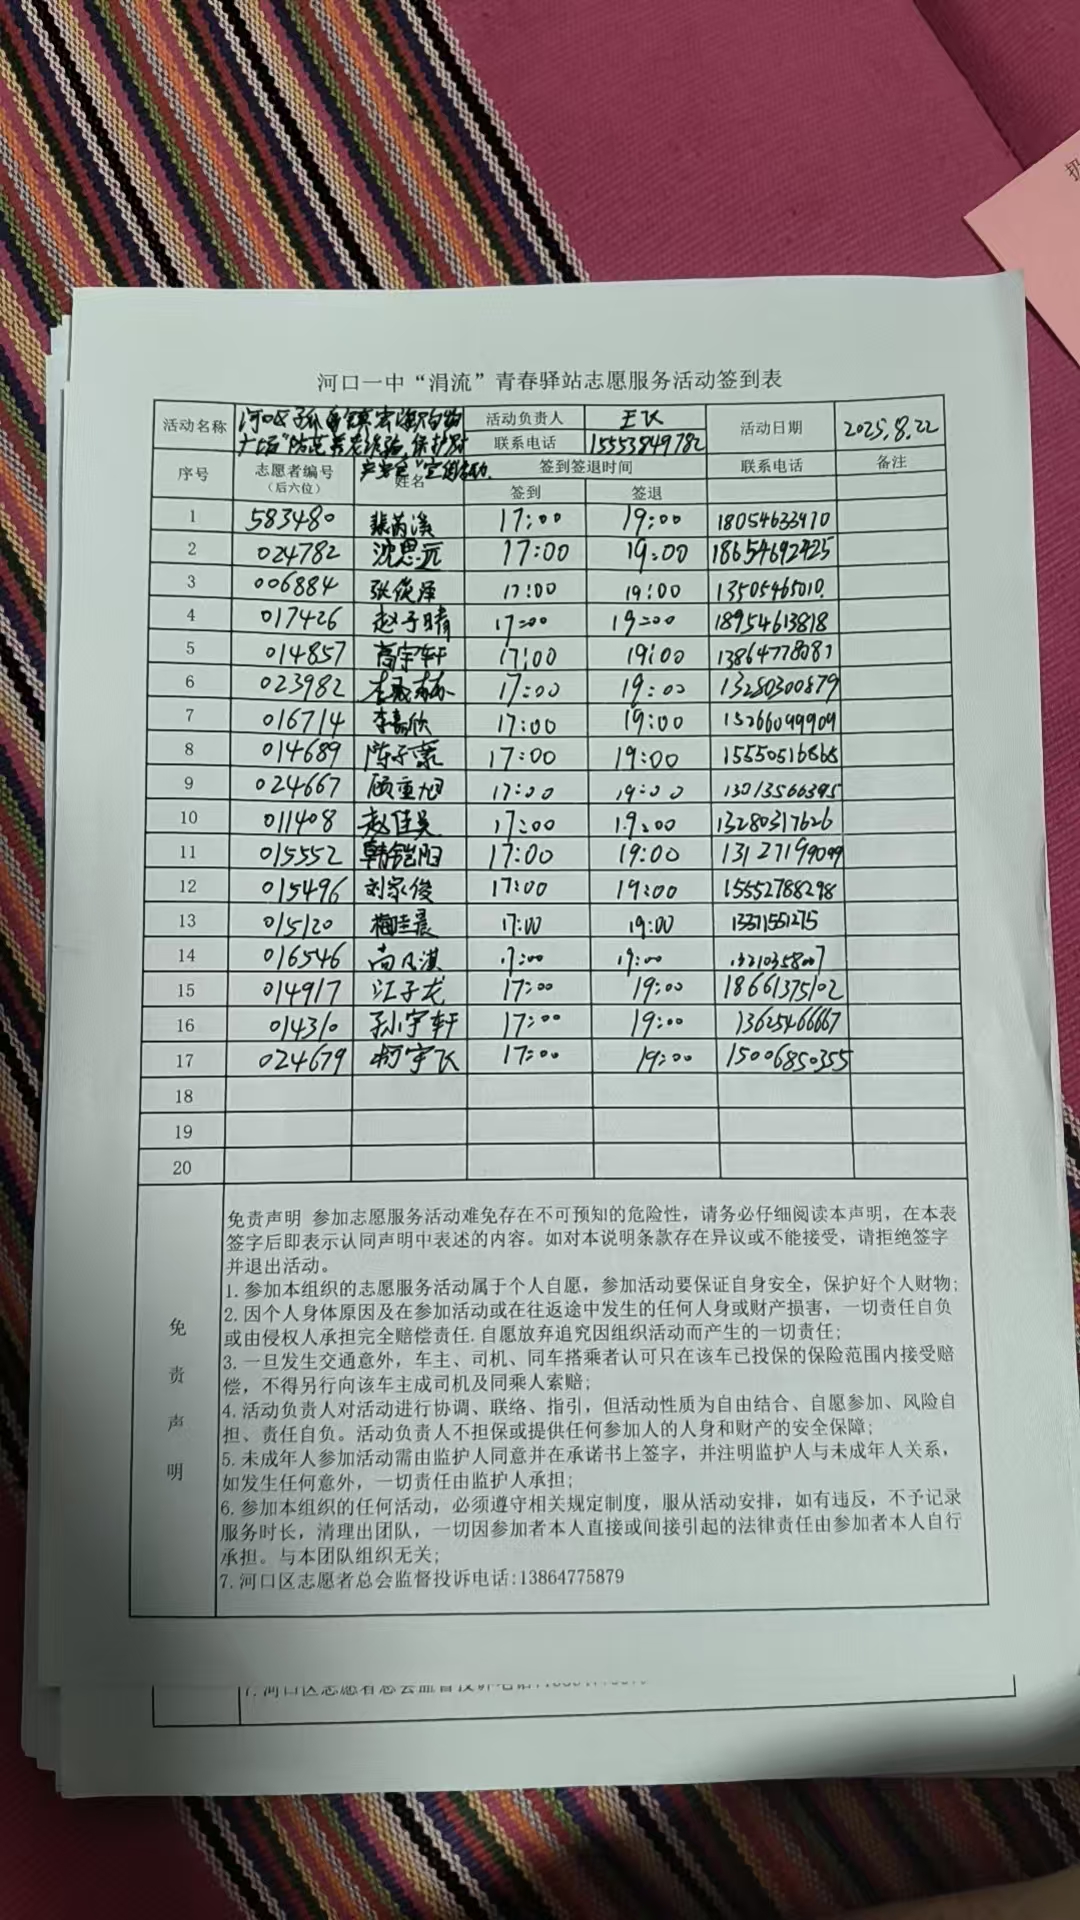 河口一中“涓流”青春驿站志愿服务活动签到表
活动名称 河口区孤岛镇 购物 活动负责人 王飞 活动日期 2025.8.22
广场“防范养老诈骗,保护财 联系电话 15553849782
产安全”宣传活动.
序号 志愿者编号 姓名 签到签退时间 联系电话 备注
(后六位) 签到 签退
1 583480 裴芮溪 17:00 19:00 18054633970
2 024782 沈思远 17:00 19:00 18654692425
3 006884 张俊泽 17:00 19:00 13505465010
4 017426 赵子晴 17:00 19:00 18954613818
5 014857 高宇轩 17:00 19:00 13864778087
6 023982 17:00 19:00 13280300879
7 016714 李嘉欣 17:00 19:00 15266099909
8 014689 17:00 19:00 15550516868
9 024667 顾重旭 17:00 19:00 13013566395
10 011408 赵佳昊 17:00 19:00 13280317626
11 015552 韩铠阳 17:00 19:00 13127199099
12 015496 刘家俊 17:00 19:00 15552788298
13 015120 梅佳晨 17:00 19:00 13371551275
14 016546 尚凡淇 17:00 19:00 13210358007
15 014917 江子龙 17:00 19:00 18661375102
16 014310 孙宇轩 17:00 19:00 13625466667
17 024679 柯宇飞 17:00 19:00 15006850355
18
19
20
免责声明
免责声明 参加志愿服务活动难免存在不可预知的危险性，请务必仔细阅读本声明，在本表
签字后即表示认同声明中表述的内容。如对本说明条款存在异议或不能接受，请拒绝签字
并退出活动。
1. 参加本组织的志愿服务活动属于个人自愿，参加活动要保证自身安全，保护好个人财物;
2. 因个人身体原因及在参加活动或在往返途中发生的任何人身或财产损害，一切责任自负
或由侵权人承担完全赔偿责任.自愿放弃追究因组织活动而产生的一切责任;
3. 一旦发生交通意外，车主、司机、同车搭乘者认可只在该车已投保的保险范围内接受赔
偿，不得另行向该车主成司机及同乘人索赔;
4. 活动负责人对活动进行协调、联络、指引，但活动性质为自由结合、自愿参加、风险自
担、责任自负。活动负责人不担保或提供任何参加人的人身和财产的安全保障;
5. 未成年人参加活动需由监护人同意并在承诺书上签字，并注明监护人与未成年人关系，
如发生任何意外，一切责任由监护人承担;
6. 参加本组织的任何活动，必须遵守相关规定制度，服从活动安排，如有违反，不予记录
服务时长，清理出团队，一切因参加者本人直接或间接引起的法律责任由参加者本人自行
承担。与本团队组织无关;
7. 河口区志愿者总会监督投诉电话:13864775879